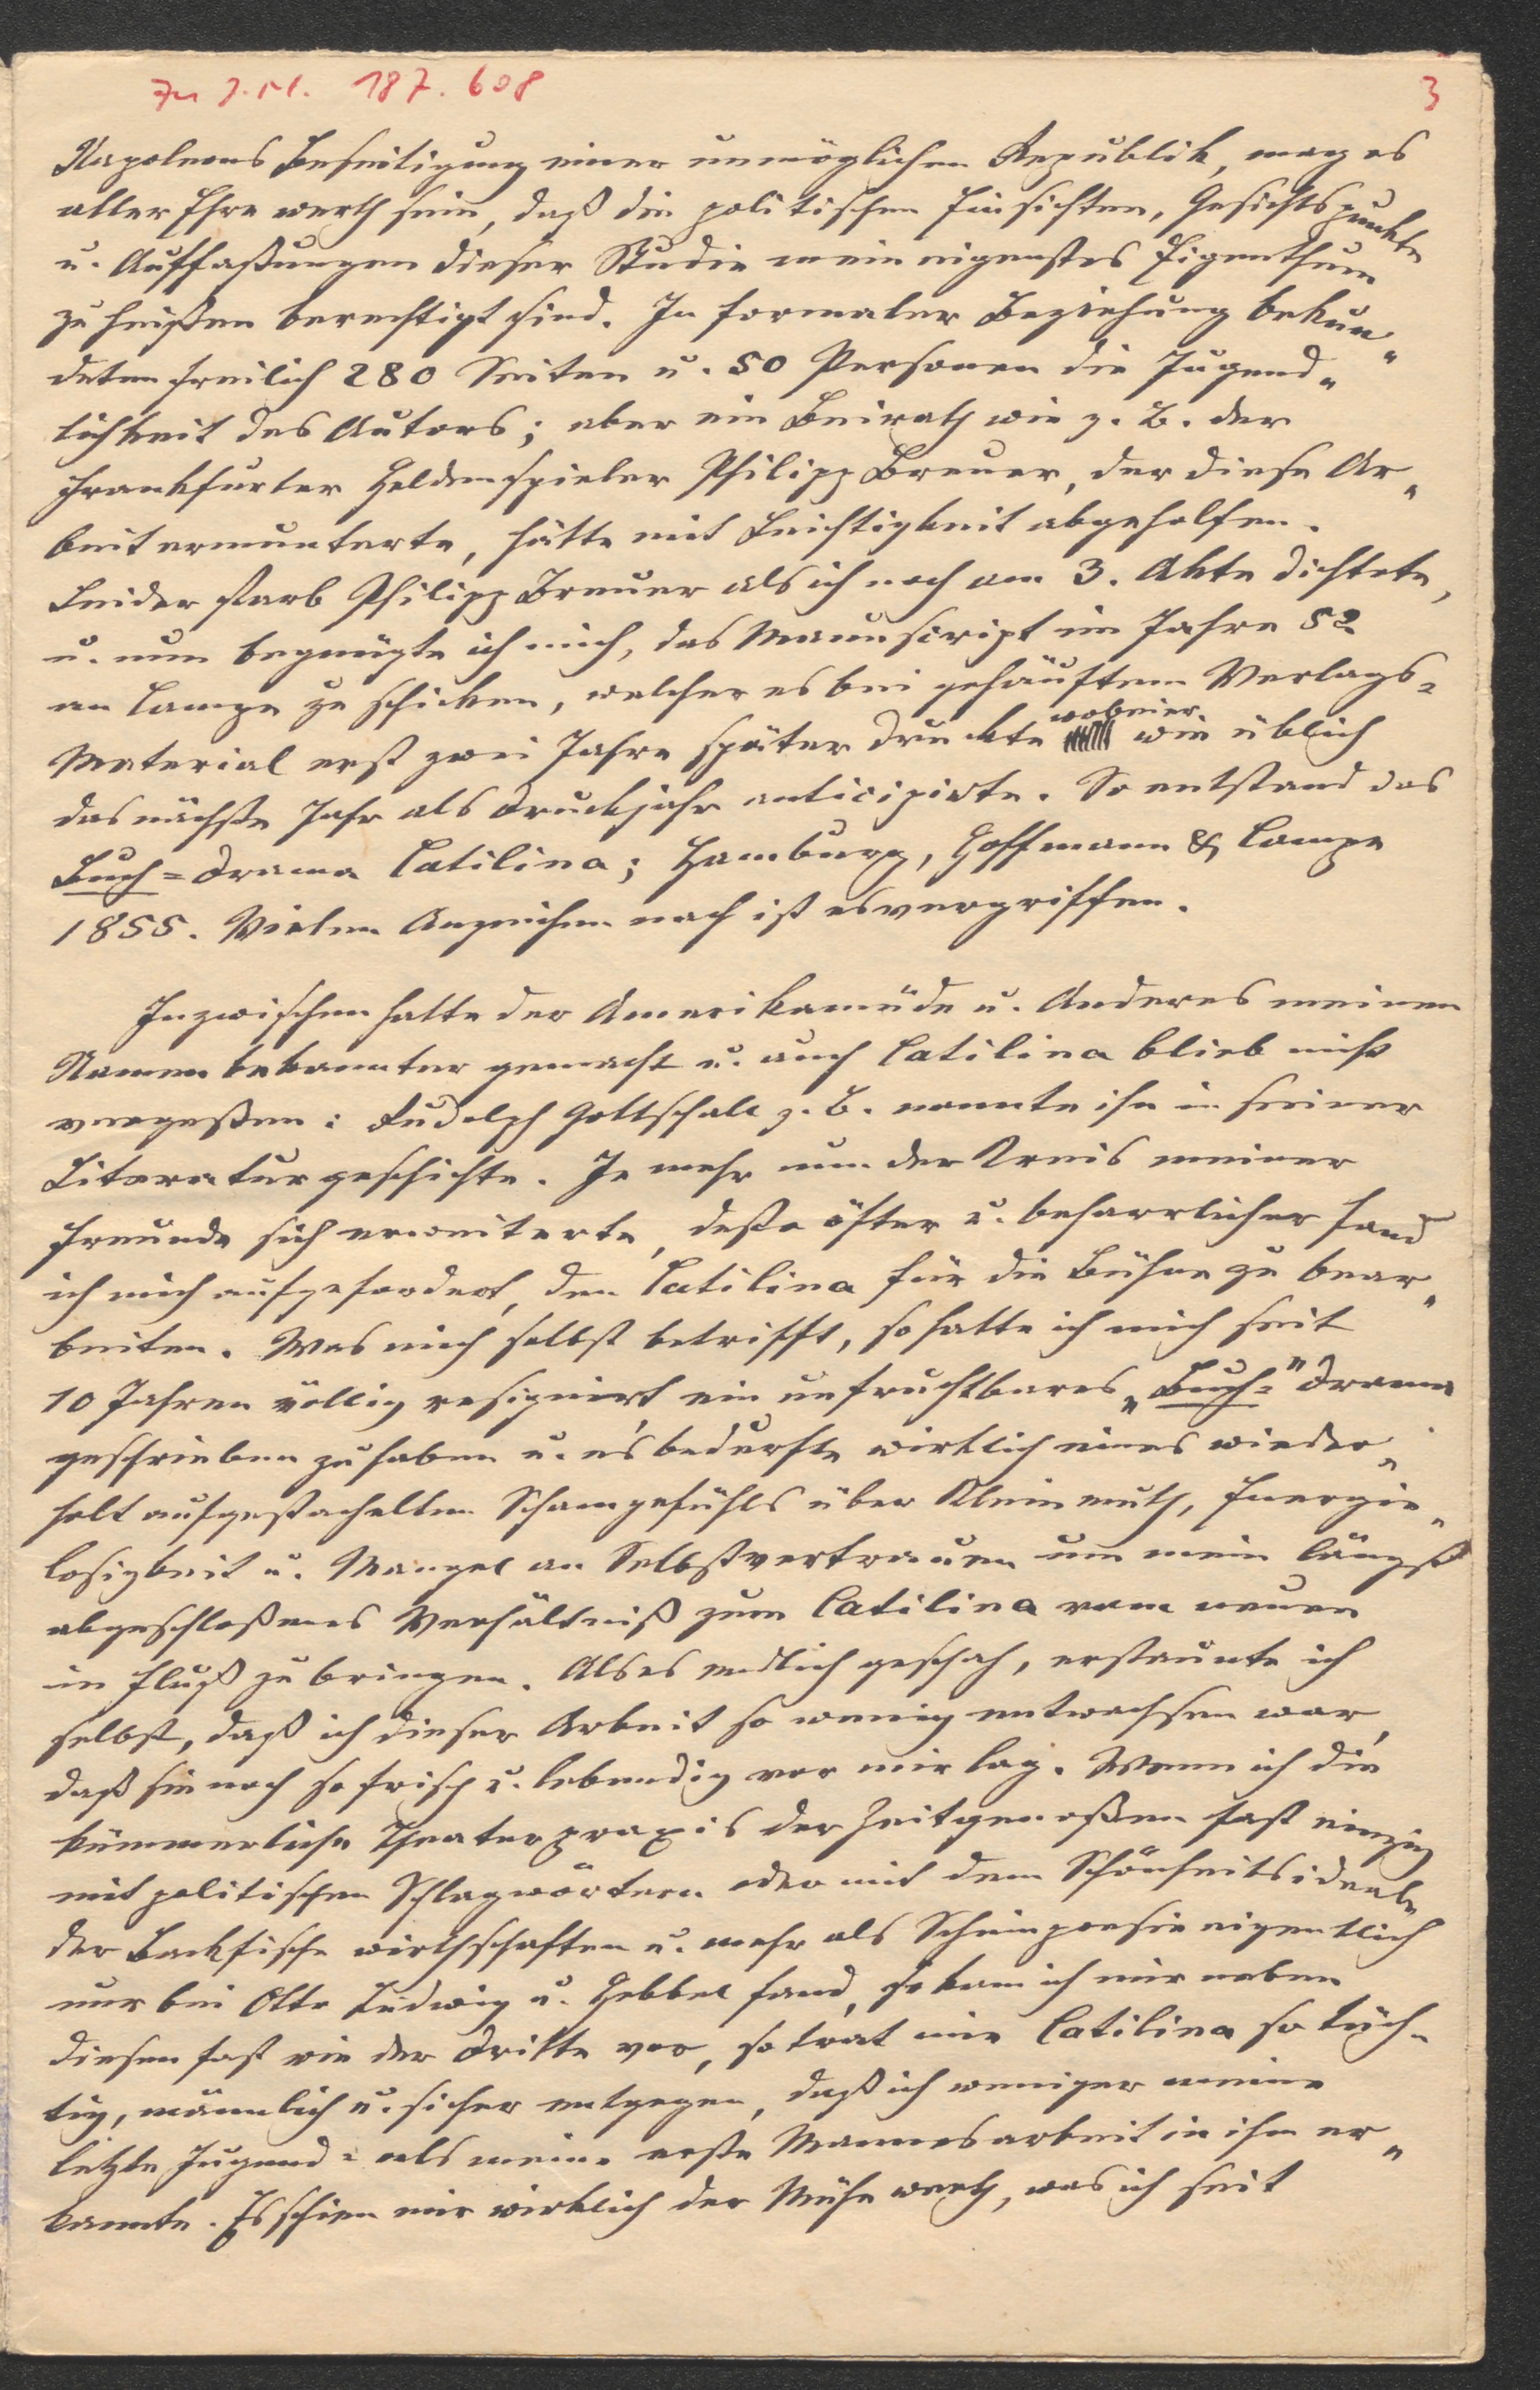 Zu I.N. 187.608
3
Napoleons Beseitigung einer unmöglichen Republik, mag es
aller Ehre werth sein, daß die politischen Einsichten, Gesichtspunkte
u. Auffaßungen dieser Studie mein eigenstes Eigenthum
zu heißen berechtigt sind. In formaler Beziehung bekun-
deten freilich 280 Seiten u. 50 Personen die Jugend-
lichkeit des Autors; aber ein Beirath wie z. B. der
Frankfurter Heldenspieler Philipp Breuer, der diese Ar-
beit ermunterte, hätte mit Leichtigkeit abgeholfen.
Leider starb Philipp Breuer als ich noch am 3. Akte dichtete,
u. nun begnügte ich mich, das Manuscript im Jahre 52
an Campe zu schicken, welcher es bei gehäuftem Verlags=
Material erst zwei Jahre später druckte wobei er wie üblich
das nächste Jahr als Druckjahr anticipirte. So entstand das
Buch=Drama Catilina; Hamburg, Hoffmann & Campe
1855. Vielen Anzeichen nach ist es vergriffen.
Inzwischen hatte der Amerikamüde u. Anderes meinen
Namen bekannter gemacht u. auch Catilina blieb nicht
vergeßen: Rudolph Gottschall z. B. nannte ihn in seiner
Literaturgeschichte. Je mehr nun der Kreis meiner
Freunde sich erweiterte, desto öfter u. beharrlicher fand
ich mich aufgefordert, den Catilina für die Bühne zu bear-
beiten. Was mich selbst betrifft, so hatte ich mich seit
10 Jahren völlig resignirt ein unfruchtbares „Buch="Drama
geschrieben zu haben u. es bedurfte wirklich eines wieder-
holt aufgestachelten Schamgefühls über Kleinmuth, Energie-
losigkeit u. Mangel an Selbstvertrauen um mein längst
abgeschloßenes Verhältniß zum Catilina vom neuen
in Fluß zu bringen. Als es endlich geschah, erstaunte ich
selbst, daß ich dieser Arbeit so wenig entwachsen war,
daß sie noch so frisch u. lebendig vor mir lag. Wenn ich die
kümmerliche Theaterpraxis der Zeitgenoßen fast einzig
mit politischen Schlagwörtern oder mit dem Schönheitsideale
der Backfische wirthschaften u. mehr als Scheinpoesie eigentlich
nur bei Otto Ludwig u. Hebbel fand, so kam ich mir neben
diesen fast wie der Dritte vor, so trat mir Catilina so tüch-
tig, männlich u. sicher entgegen, daß ich weniger meine
letzte Jugend= als meine erste Mannesarbeit in ihm er-
kannte. Es schien mir wirklich der Mühe werth, was ich seit